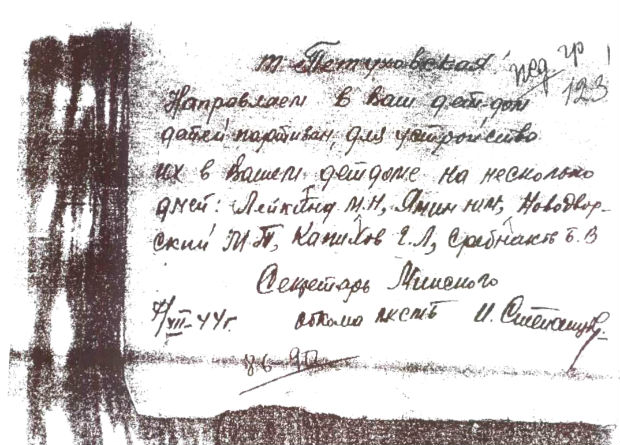 т. Петуховская
пед гр 1
123
Направляем в Ваш дет-дом
детей партизан, для устройства
их в Вашем детдоме на несколько
дней: Лейкинд М.Н, Ямин Н.М, Новодвор-
ский М.Т, Капилов Г.Л, Сребник Б.В
Секретарь Минского
7/VII-44г. обкома ЛКСМБ И.
86